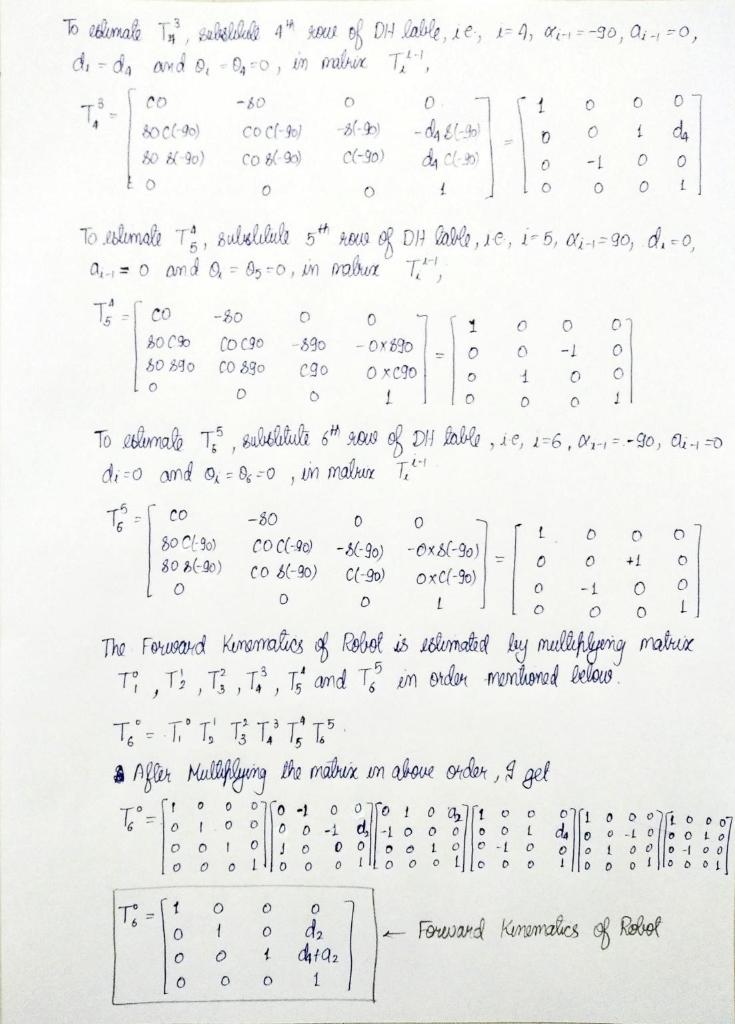 To estimate T₄³, substitute 4ᵗʰ row of DH table, i.e, i=4, αᵢ₋₁=-90, aᵢ₋₁=0,
dᵢ = d₄ and θᵢ = θ₄=0, in matrix Tᵢⁱ⁻¹,
T₄³ = [ C0 -S0 0 0 ] = [ 1 0 0 0 ]
[ S0 C(-90) C0 C(-90) -S(-90) -d₄ S(-90) ] [ 0 0 1 d₄ ]
[ S0 S(-90) C0 S(-90) C(-90) d₄ C(-90) ] [ 0 -1 0 0 ]
[ 0 0 0 1 ] [ 0 0 0 1 ]
To estimate T₅⁴, substitute 5ᵗʰ row of DH table, i.e, i=5, αᵢ₋₁=90, dᵢ=0,
aᵢ₋₁ = 0 and θᵢ = θ₅=0, in matrix Tᵢⁱ⁻¹,
T₅⁴ = [ C0 -S0 0 0 ] = [ 1 0 0 0 ]
[ S0 C90 C0 C90 -S90 -0×S90 ] [ 0 0 -1 0 ]
[ S0 S90 C0 S90 C90 0×C90 ] [ 0 1 0 0 ]
[ 0 0 0 1 ] [ 0 0 0 1 ]
To estimate T₆⁵, substitute 6ᵗʰ row of DH table, i.e, i=6, αᵢ₋₁=-90, aᵢ₋₁=0
dᵢ=0 and θᵢ = θ₆=0, in matrix Tᵢⁱ⁻¹
T₆⁵ = [ C0 -S0 0 0 ] = [ 1 0 0 0 ]
[ S0 C(-90) C0 C(-90) -S(-90) -0×S(-90) ] [ 0 0 +1 0 ]
[ S0 S(-90) C0 S(-90) C(-90) 0×C(-90) ] [ 0 -1 0 0 ]
[ 0 0 0 1 ] [ 0 0 0 1 ]
The Forward Kinematics of Robot is estimated by multiplying matrix
T₁⁰, T₂¹, T₃², T₄³, T₅⁴ and T₆⁵ in order mentioned below.
T₆⁰ = T₁⁰ T₂¹ T₃² T₄³ T₅⁴ T₆⁵
After Multiplying the matrix in above order, I get
T₆⁰ = [ 1 0 0 0 ] [ 0 -1 0 0 ] [ 0 1 0 a₂ ] [ 1 0 0 0 ] [ 1 0 0 0 ] [ 1 0 0 0 ]
[ 0 1 0 0 ] [ 0 0 -1 d₂ ] [ -1 0 0 0 ] [ 0 0 1 d₄ ] [ 0 0 -1 0 ] [ 0 0 1 0 ]
[ 0 0 1 0 ] [ 1 0 0 0 ] [ 0 0 1 0 ] [ 0 -1 0 0 ] [ 0 1 0 0 ] [ 0 -1 0 0 ]
[ 0 0 0 1 ] [ 0 0 0 1 ] [ 0 0 0 1 ] [ 0 0 0 1 ] [ 0 0 0 1 ] [ 0 0 0 1 ]
T₆⁰ = [ 1 0 0 0 ]
[ 0 1 0 d₂ ] ← Forward Kinematics of Robot
[ 0 0 1 d₄+a₂ ]
[ 0 0 0 1 ]